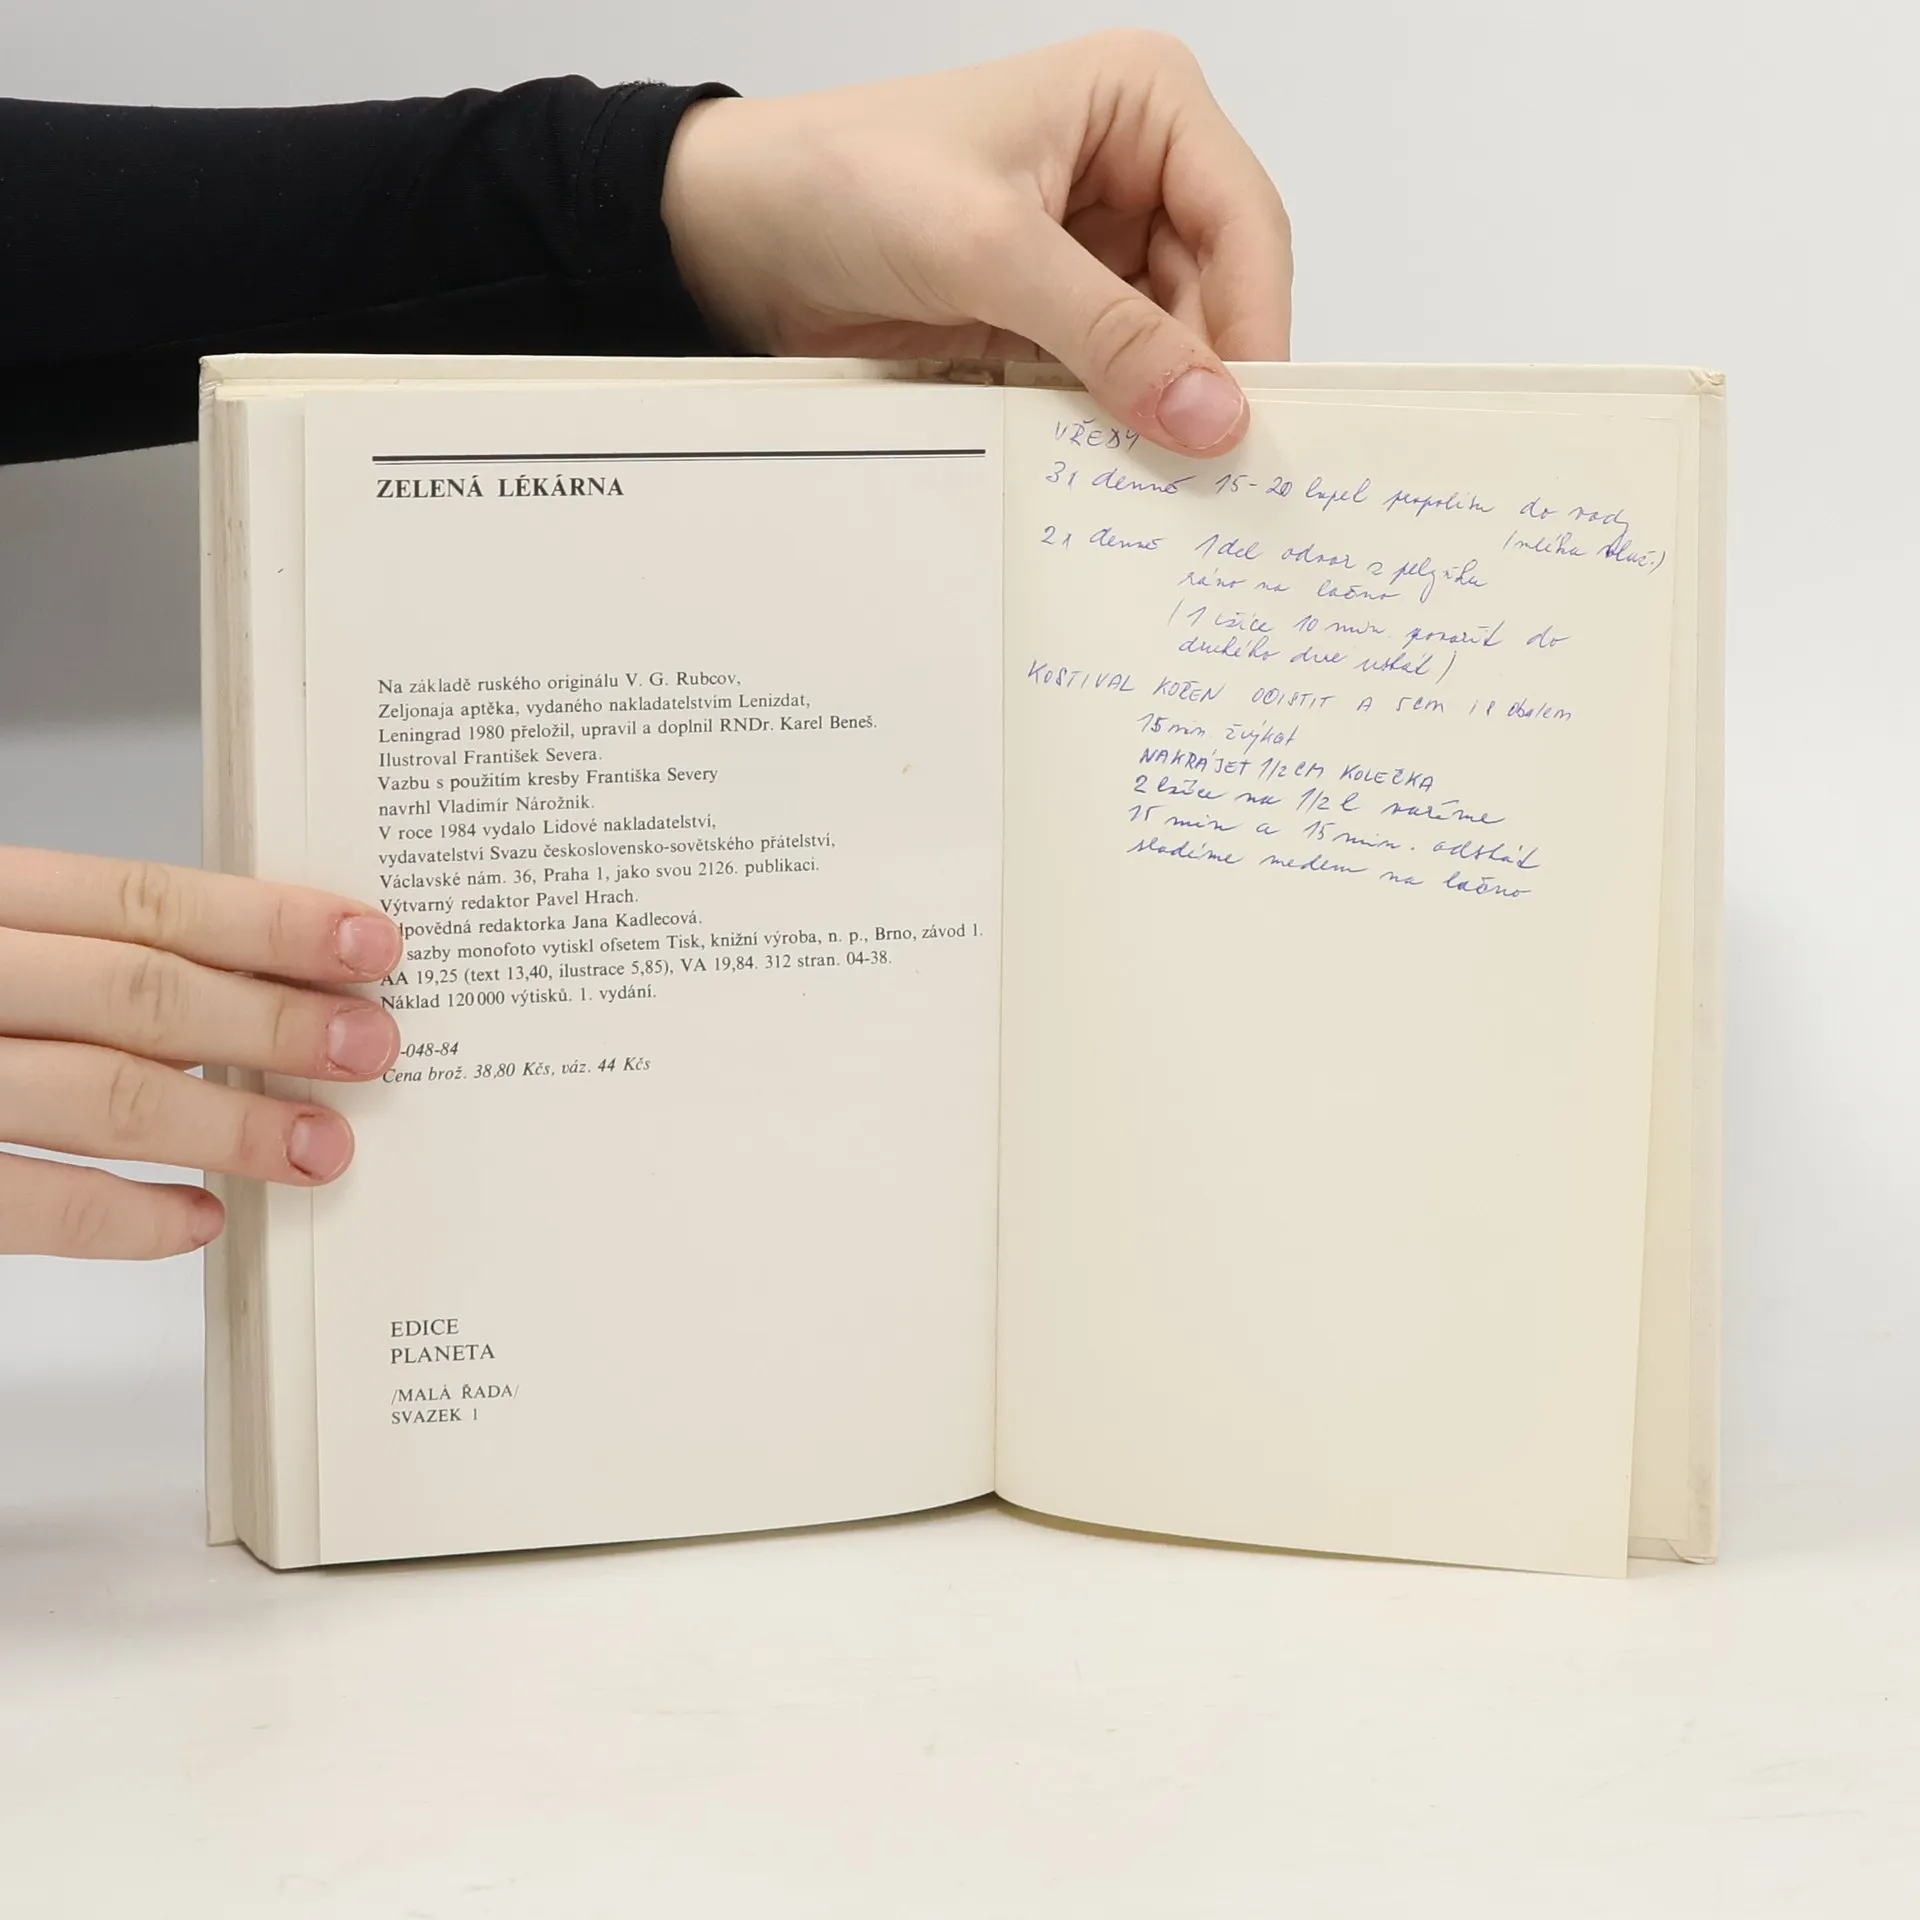 ZELENÁ LÉKÁRNA
Na základě ruského originálu V. G. Rubcov,
Zeljonaja aptěka, vydaného nakladatelstvím Lenizdat,
Leningrad 1980 přeložil, upravil a doplnil RNDr. Karel Beneš.
Ilustroval František Severa.
Vazbu s použitím kresby Františka Severy
navrhl Vladimír Nárožník.
V roce 1984 vydalo Lidové nakladatelství,
vydavatelství Svazu československo-sovětského přátelství,
Václavské nám. 36, Praha 1, jako svou 2126. publikaci.
Výtvarný redaktor Pavel Hrach.
dpovědná redaktorka Jana Kadlecová.
sazby monofoto vytiskl ofsetem Tisk, knižní výroba, n. p., Brno, závod 1.
AA 19,25 (text 13,40, ilustrace 5,85), VA 19,84. 312 stran. 04-38.
Náklad 120 000 výtisků. 1. vydání.
-048-84
Cena brož. 38,80 Kčs, váz. 44 Kčs
EDICE
PLANETA
/MALÁ ŘADA/
SVAZEK 1
VŘEDY
3x denně 15-20 kapek propolisu do vody
(mléka
2x denně 1 del odvar z pelyňku
ráno na lačno
(1 lžíce 10 min. povařit do
druhého dne ustát)
KOSTIVAL KOŘEN OČISTIT A 5cm i s obalem
15 min. žvýkat
NAKRÁJET 1/2 CM KOLEČKA
2 lžíce na 1/2 l vaříme
15 min a 15 min. odstát
sladíme medem na lačno